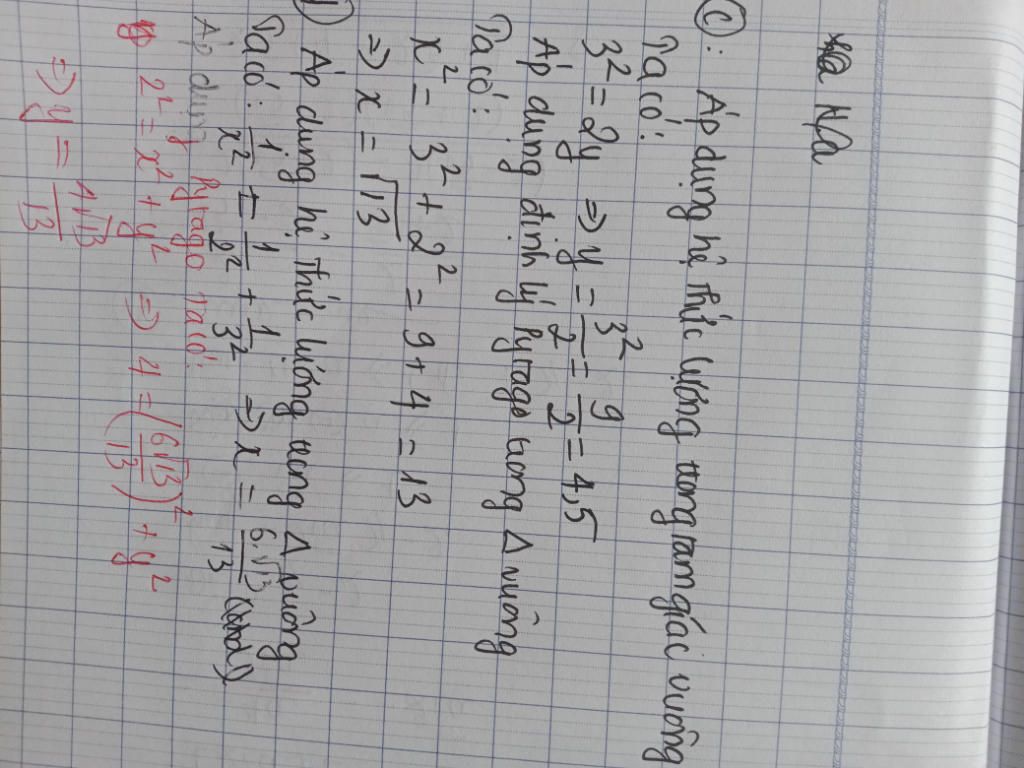 H/a
c): Áp dụng hệ thức lượng trong tam giác vuông
Ta có:
3² = 2y ⇒ y = 3²/2 = 9/2 = 4,5
Áp dụng định lý Pytago trong Δ vuông
Ta có:
x² = 3² + 2² = 9 + 4 = 13
⇒ x = √13
Áp dụng hệ thức lượng trong Δ vuông
Ta có: 1/x² = 1/2² + 1/3² ⇒ x = 6√13/13
Áp dụng Pytago ta có:
2² = x² + y² ⇒ 4 = (6√13/13)² + y²
⇒ y = 4√13/13